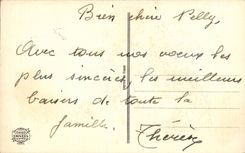 Bien chère Nelly,
Avec tous nos voeux les
plus sincères, les meilleurs
baisers de toute la
famille.
Thérèse